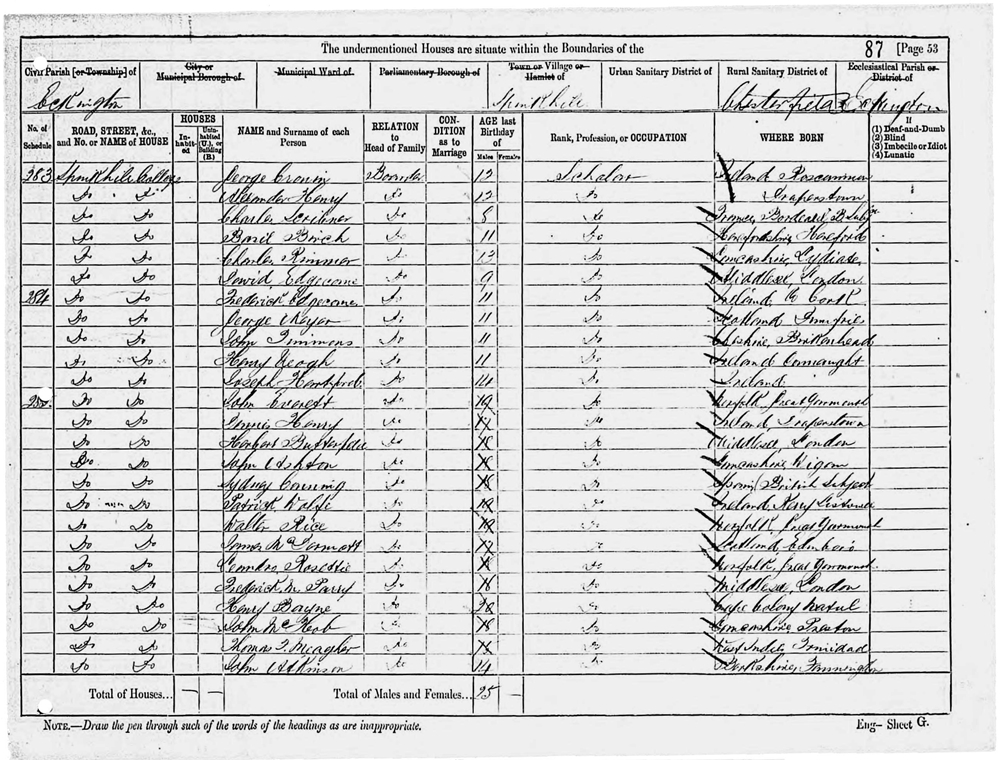 The undermentioned Houses are situate within the Boundaries of the
87 [Page 53
Civil Parish [or Township] of
City or Municipal Borough of
Municipal Ward of
Parliamentary Borough of
Town or Village or Hamlet of
Urban Sanitary District of
Rural Sanitary District of
Ecclesiastical Parish or District of
Eckington
Spinkhill
Chesterfield Eckington
No. of Schedule
ROAD, STREET, &c., and No. or NAME of HOUSE
HOUSES
In-habited
Unin-habited (U.), or Building (B.)
NAME and Surname of each Person
RELATION to Head of Family
CON-DITION as to Marriage
AGE last Birthday of
Males Females
Rank, Profession, or OCCUPATION
WHERE BORN
If
(1) Deaf-and-Dumb
(2) Blind
(3) Imbecile or Idiot
(4) Lunatic
283 Spinkhill College George Cronin Boarder 12 Scholar Ireland Roscommon
Do Do Alexander Henry Do 12 Do Draperstown
Do Do Charles Do 8 Do France,
Do Do Basil Birch Do 11 Do Herefordshire Hereford
Do Do Charles Rimmer Do 13 Do Lancashire, Lydiate
Do Do David Edgecome Do 9 Do Middlesex, London
284 Do Do Frederick Edgecome Do 11 Do Ireland Co Cork
Do Do George Do 11 Do Scotland Dumfries
Do Do John Timmons Do 11 Do Cheshire, Birkenhead
Do Do Henry Keogh Do 11 Do Ireland Connaught
Do Do Joseph Do 14 Do Ireland
Do Do John Everett Do 19 Do Norfolk, Great Yarmouth
Do Do Henry Do 17 Do Ireland, Draperstown
Do Do Herbert Do 18 Do Middlesex, London
Do Do John Ashton Do 18 Do Lancashire Wigan
Do Do Sydney Do 18 Do Spain, British Subject
Do Do Patrick Wolfe Do 19 Do Ireland, Kerry Listowel
Do Do Walter Rice Do 19 Do Norfolk, Great Yarmouth
Do Do James McDermott Do 17 Do Scotland, Edinboro
Do Do Do Do Norfolk, Great Yarmouth
Do Do Frederick M. Parry Do 18 Do Middlesex, London
Do Do Henry Bayne Do 20 Do Cape Colony Natal
Do Do John Do 18 Do Lancashire, Preston
Do Do Thomas F. Meagher Do Do West Indies, Trinidad
Do Do John Atkinson Do 14 Do
Total of Houses... — —
Total of Males and Females... 25 —
NOTE.—Draw the pen through such of the words of the headings as are inappropriate.
Eng— Sheet G.